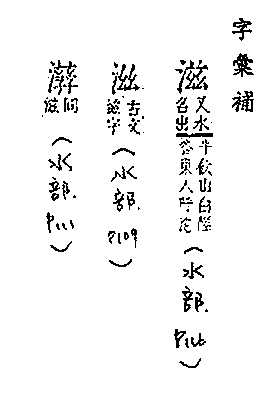 字彙補
滋 又水名出牛飲山白陘谷東入呼沱（水部 P116）
滋 古文滋字（水部 P109）
同滋（水部 P111）